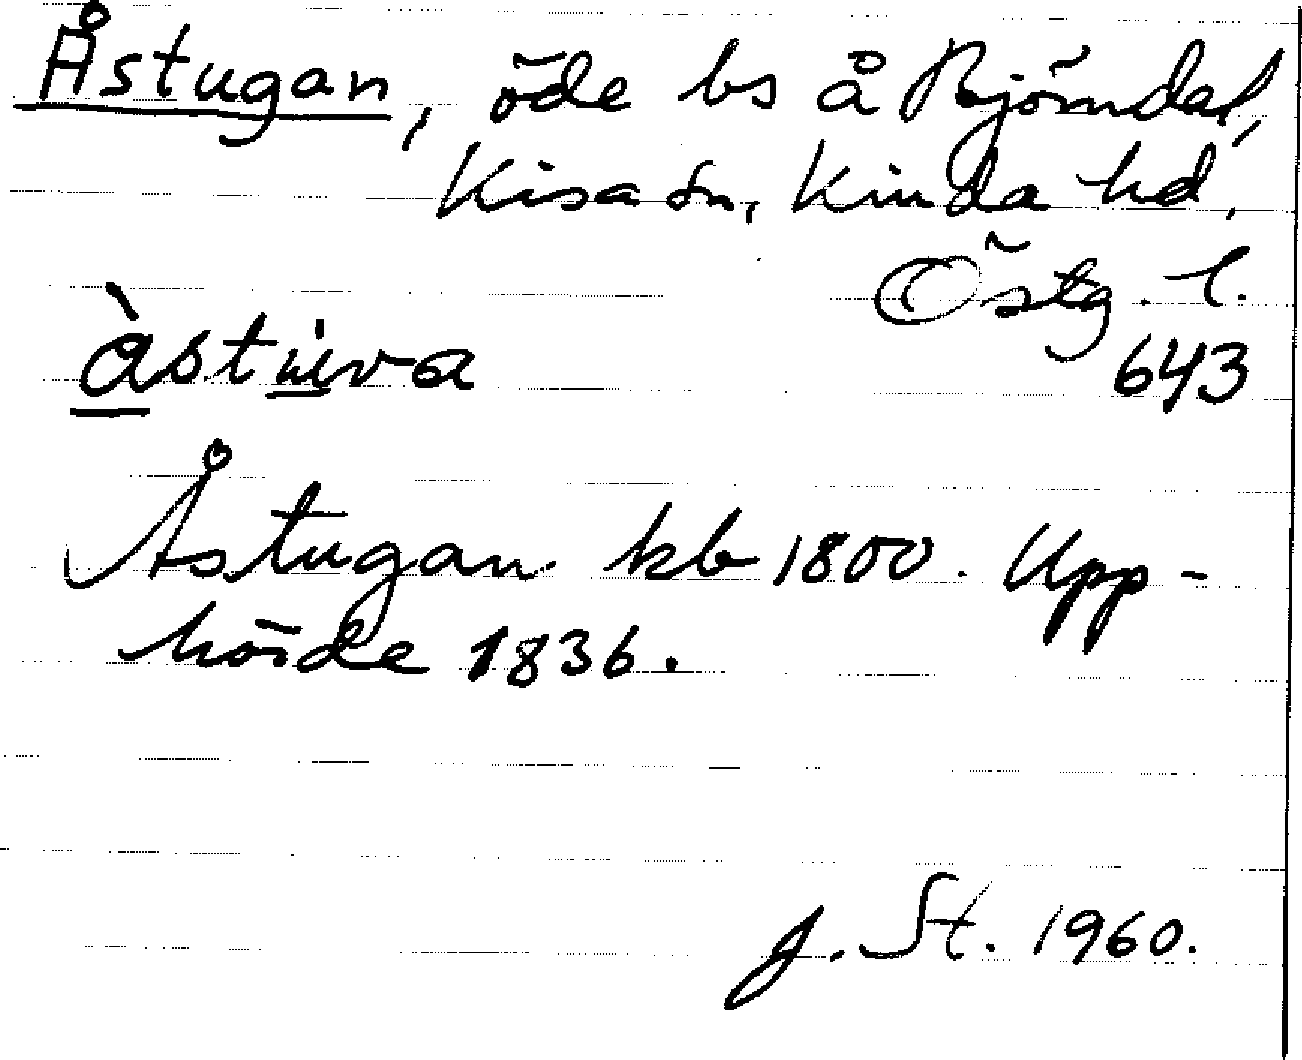 Åstugan, öde bs å Björndal,
Kisa sn, Kinda hd,
Östg. l.
àstu̇va 643
Åstugan kb 1800. Upp-
hörde 1836.
J. St. 1960.